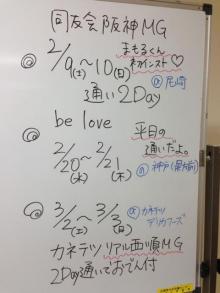 同友会阪神MG
@ 2/9(土)~10(日) まもるくん
初インスト♡
@尼崎
通い2Day
@ be love
平日の
通いだよ。
2/20(水)~2/21(木)
@神戸(県大前)
@ 3/2(土)~3/3(日) @カネテツ
デリカフーズ
カネテツリアル西順MG
2Day通いでおでん付